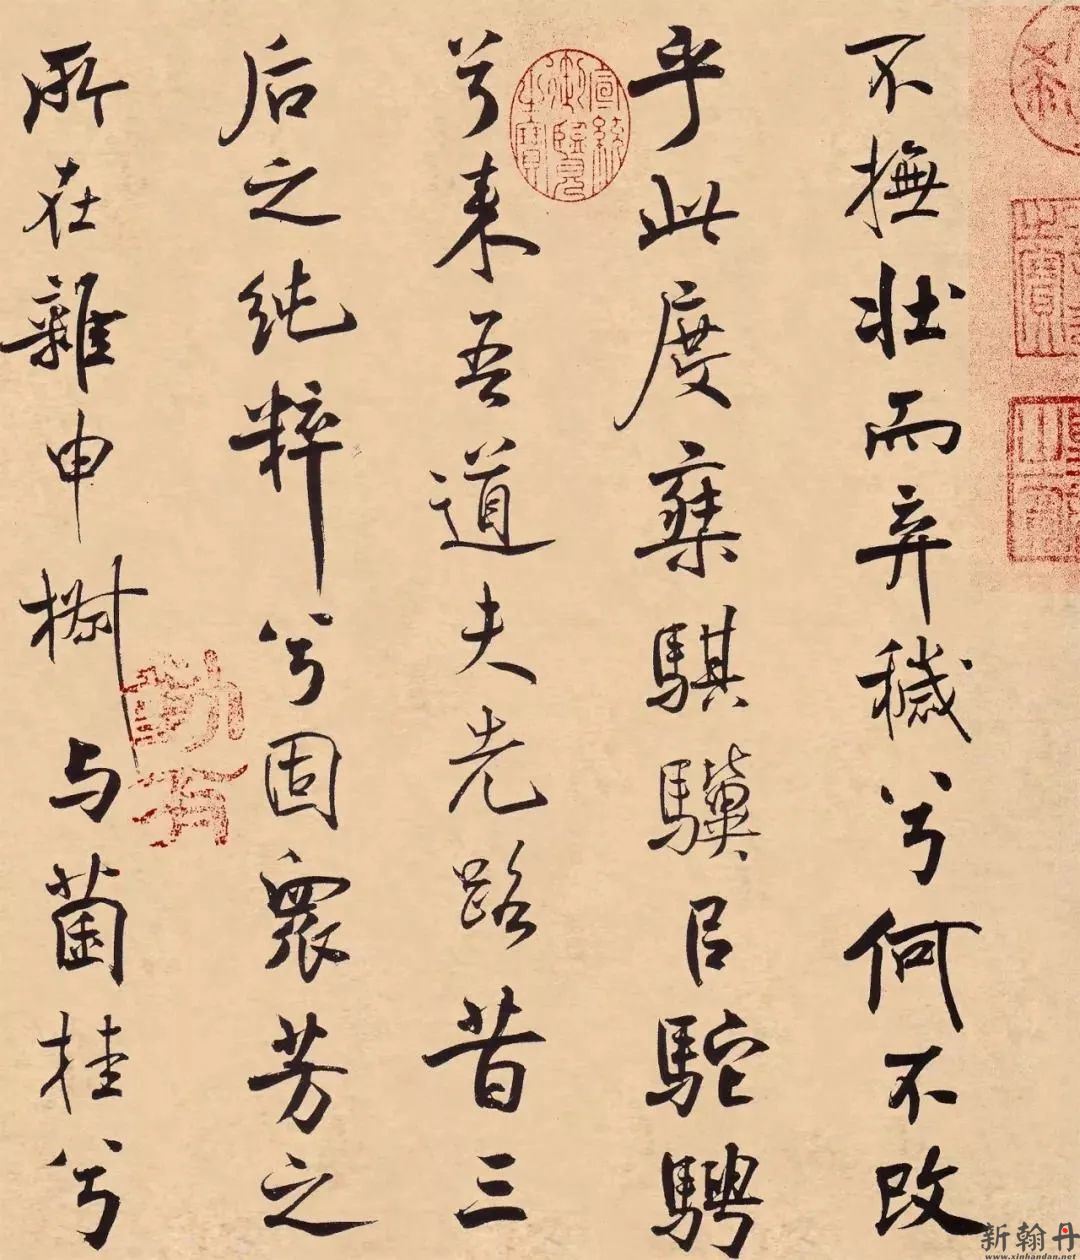 不撫壯而弃穢兮何不改
乎此度椉騏驥㠯駝騁
兮来吾道夫先路昔三
后之純粹兮固衆芳之
所在雜申椒与菌桂兮
宣統御覽之寶
新翰丹
www.xinhandan.net